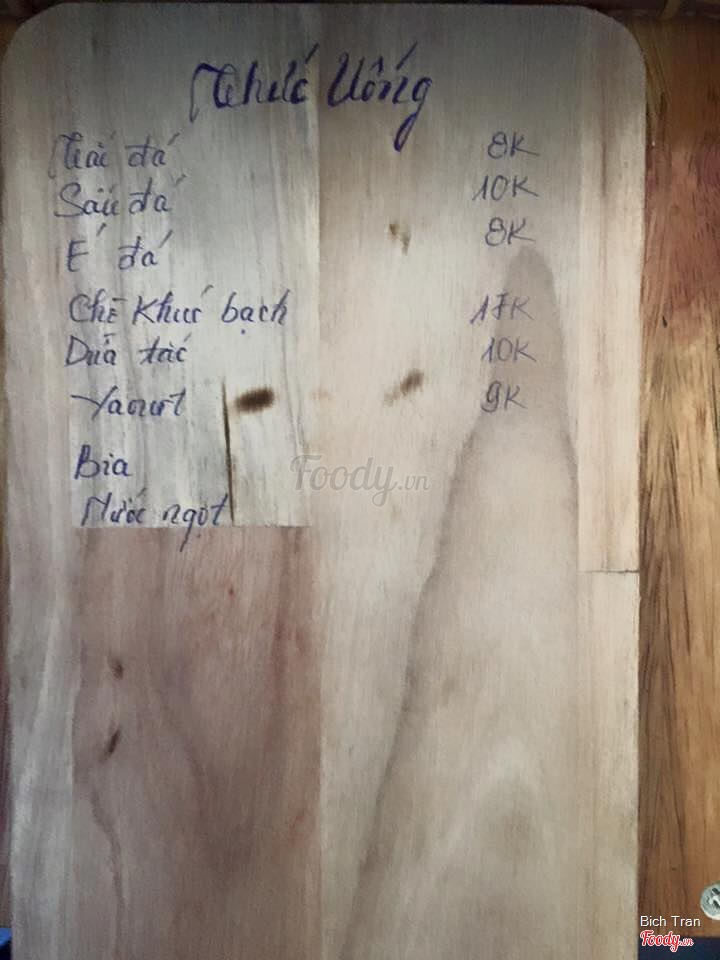 Thức Uống
Trái đá 8K
Sấu đá 10K
É đá 8K
Chè Khúc bạch 17K
Dứa tắc 10K
Yaourt 9K
Bia
Nước ngọt
Foody.vn
Bich Tran
Foody.vn